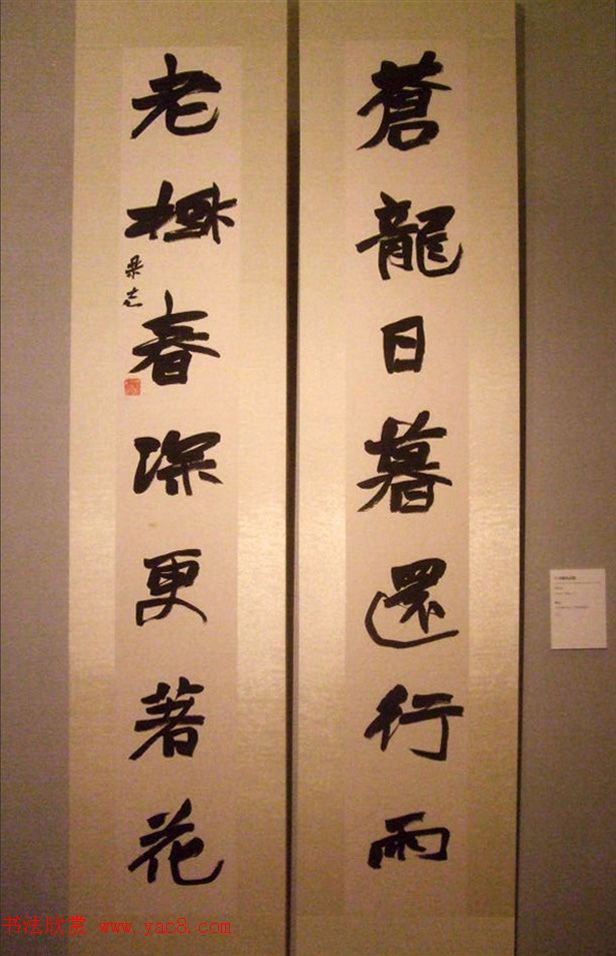 蒼龍日暮還行雨
老樹春深更著花
书法欣赏 www.yac8.com